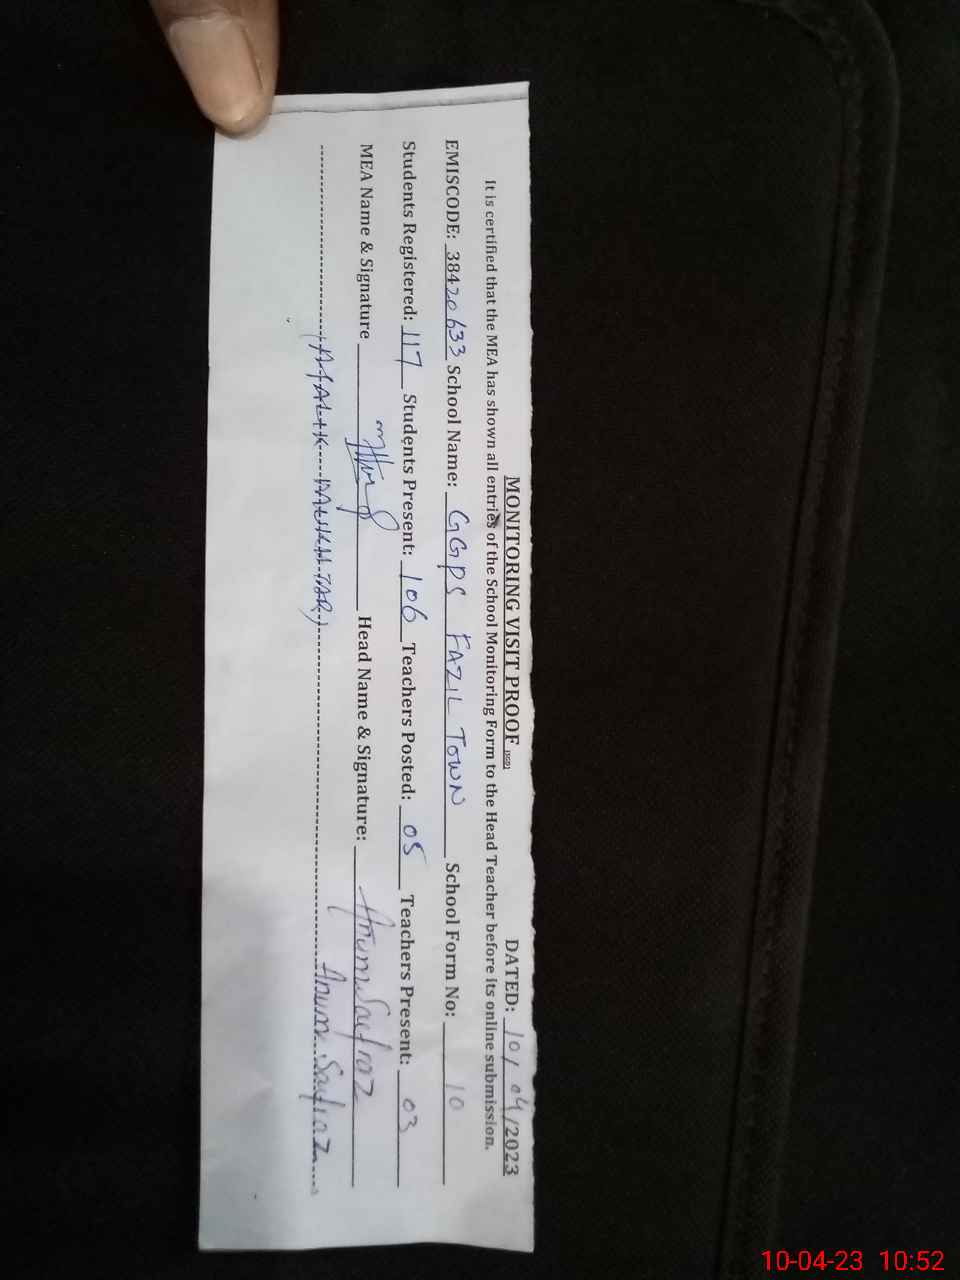 MONITORING VISIT PROOF DATED: 10/04/2023
It is certified that the MEA has shown all entries of the School Monitoring Form to the Head Teacher before its online submission.
EMISCODE: 38420633 School Name: GGPS FAZIL TOWN School Form No: 10
Students Registered: 117 Students Present: 106 Teachers Posted: 05 Teachers Present: 03
MEA Name & Signature Head Name & Signature: Anum Sarfraz
Anum Sarfraz
10-04-23 10:52